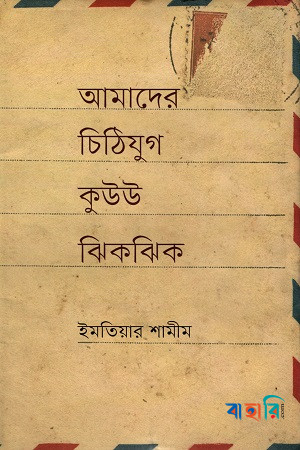 আমাদের
চিঠিযুগ
কুউউ
ঝিকঝিক
ইমতিয়ার শামীম
বাহারি.com